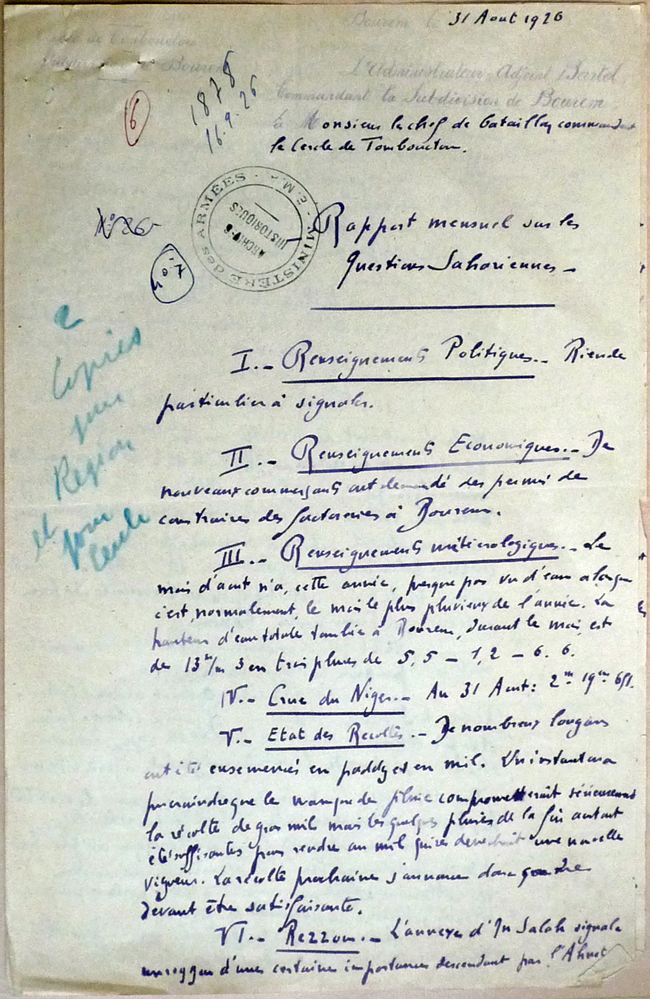 Bourem le 31 Aout 1926
Cercle de Tombouctou
Subdivision de Bourem
L'Administrateur-Adjoint Bartel
Commandant la Subdivision de Bourem
à Monsieur le chef de bataillon commandant
le Cercle de Tombouctou.
6
1878
16.9.26
N° 26
MINISTÈRE des ARMÉES
ARCHIVES
HISTORIQUES
Rapport mensuel sur les
Questions Sahariennes
2
Copies
pour
Region
et
pour
Cercle
I.- Renseignements Politiques.- Rien de
particulier à signaler.
II.- Renseignements Economiques.- De
nouveaux commerçants ont demandé des permis de
construire des factoreries à Bourem.
III.- Renseignements météorologiques.- Le
mois d'aout n'a, cette année, presque pas vu d'eau alors que
c'est, normalement, le mois le plus pluvieux de l'année. La
hauteur d'eau totale tombée à Bourem, durant le mois, est
de 13 m/m 3 en trois pluies de 5,5 - 1,2 - 6.6.
IV.- Crue du Niger.- Au 31 Aout: 2m 19
V.- Etat des Récoltes.- De nombreux lougans
ont été ensemencés en paddy et en mil. Un instant on a
pu craindre que le manque de pluie compromettrait sérieusement
la récolte de gros mil mais les quelques pluies de la fin aout ont
été suffisantes pour rendre au mil une nouvelle
vigueur. La récolte prochaine s'annonce donc comme
devant être satisfaisante.
VI.- Rezzou.- L'annexe d'In Salah signale
un rezzou d'une certaine importance descendant par l'Ahnet